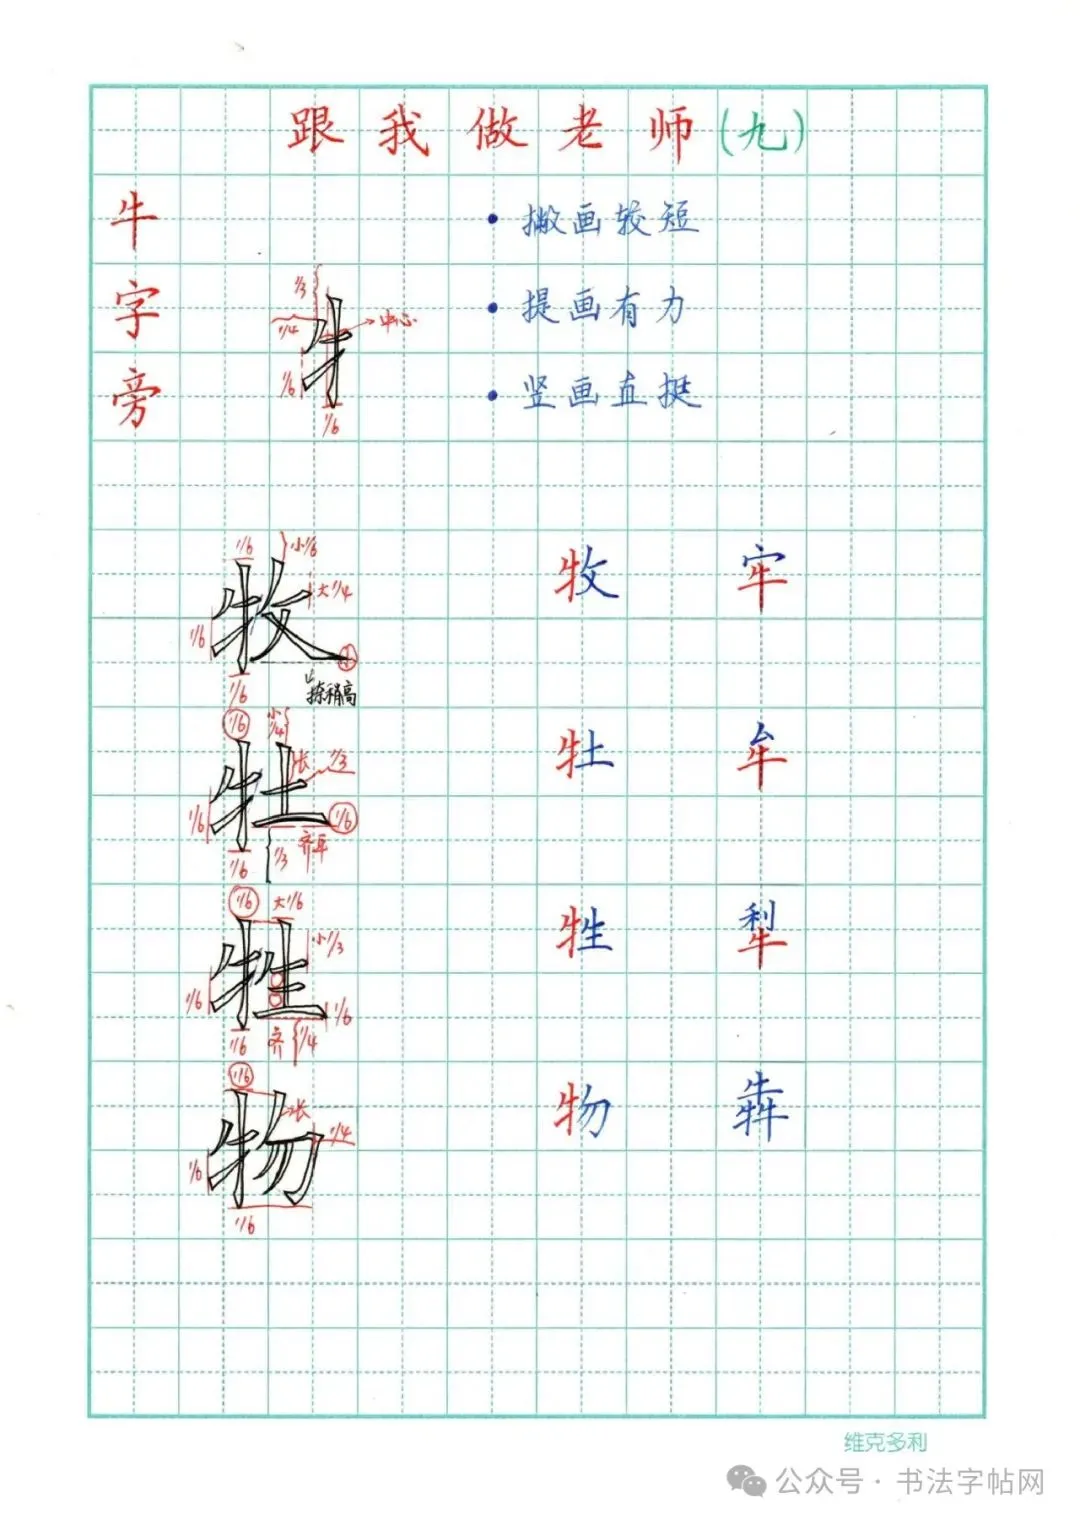 跟我做老师(九)
牛字旁
• 撇画较短
• 提画有力
• 竖画直挺
1/3
1/4
中心
1/6
1/6
1/6
小1/6
大1/4
牧
1/6
1/6
捺稍高
牧 牢
1/6
小1/4
长 1/3
牡
1/6
1/6
齐平
1/6
1/3
牡 牟
1/6
大1/6
小1/3
牲
1/6
1/6
1/6
齐
1/4
牲 犁
1/6
长
1/4
物
1/6
1/6
物 犇
维克多利
公众号 · 书法字帖网